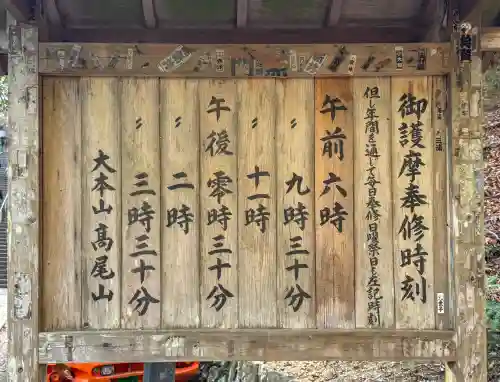 御護摩奉修時刻
但し年間を通して毎日奉修日曜祭日も左記時刻
午前六時
〃 九時三十分
〃 十一時
午後零時三十分
〃 二時
〃 三時三十分
大本山高尾山